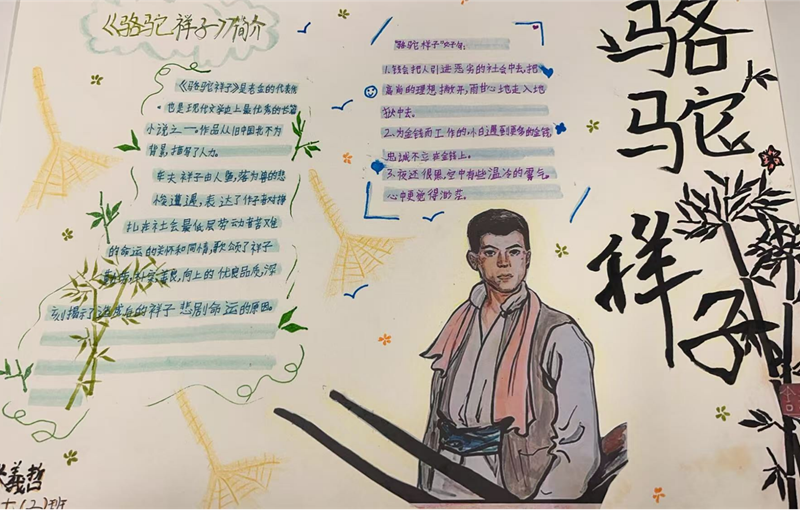 《骆驼祥子》简介
《骆驼祥子》是老舍的代表作
,也是现代文学史上最优秀的长篇
小说之一一作品从旧中国北不为
背景,描写了人力。
车夫祥子由人堕落为兽的悲
惨遭遇,表达了作者对挣
扎在社会最低层劳动者苦难
的命运的关怀和同情,歌颂了祥子
善良,向上的优良品质,深
刻揭示了造成的祥子悲剧命运的原因。
骆驼祥子
1.钱会把人引进恶劣的社会中去,把
高尚的理想撇开,而甘心地走入地
狱中去。
2.为金钱而工作的,小白遇到更多的金钱,
忠诚不立在金钱上。
3.夜还很黑,空中有些湿冷的雾气,
心中更觉得渺茫。
骆
驼
祥
子
義哲
(2)班